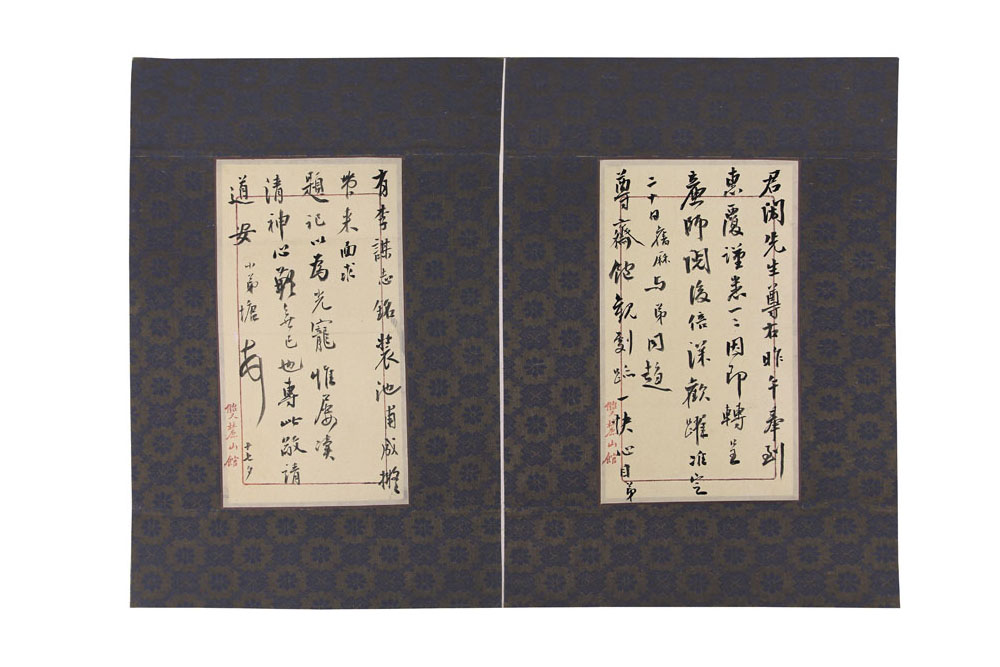 君闓先生尊右昨午奉到
惠覆謹悉一二因即轉呈
廉師閱後倍深歡躍准定
二十日舊麻与弟同趨
尊齋飽觀劇跡一快心目弟
有李謀志銘裝池甫成擬
帶來面求
題記以為光寵惟屢瀆
清神心難無已也專此敬請
道安 小弟塘
十七夕
麓山館
麓山館